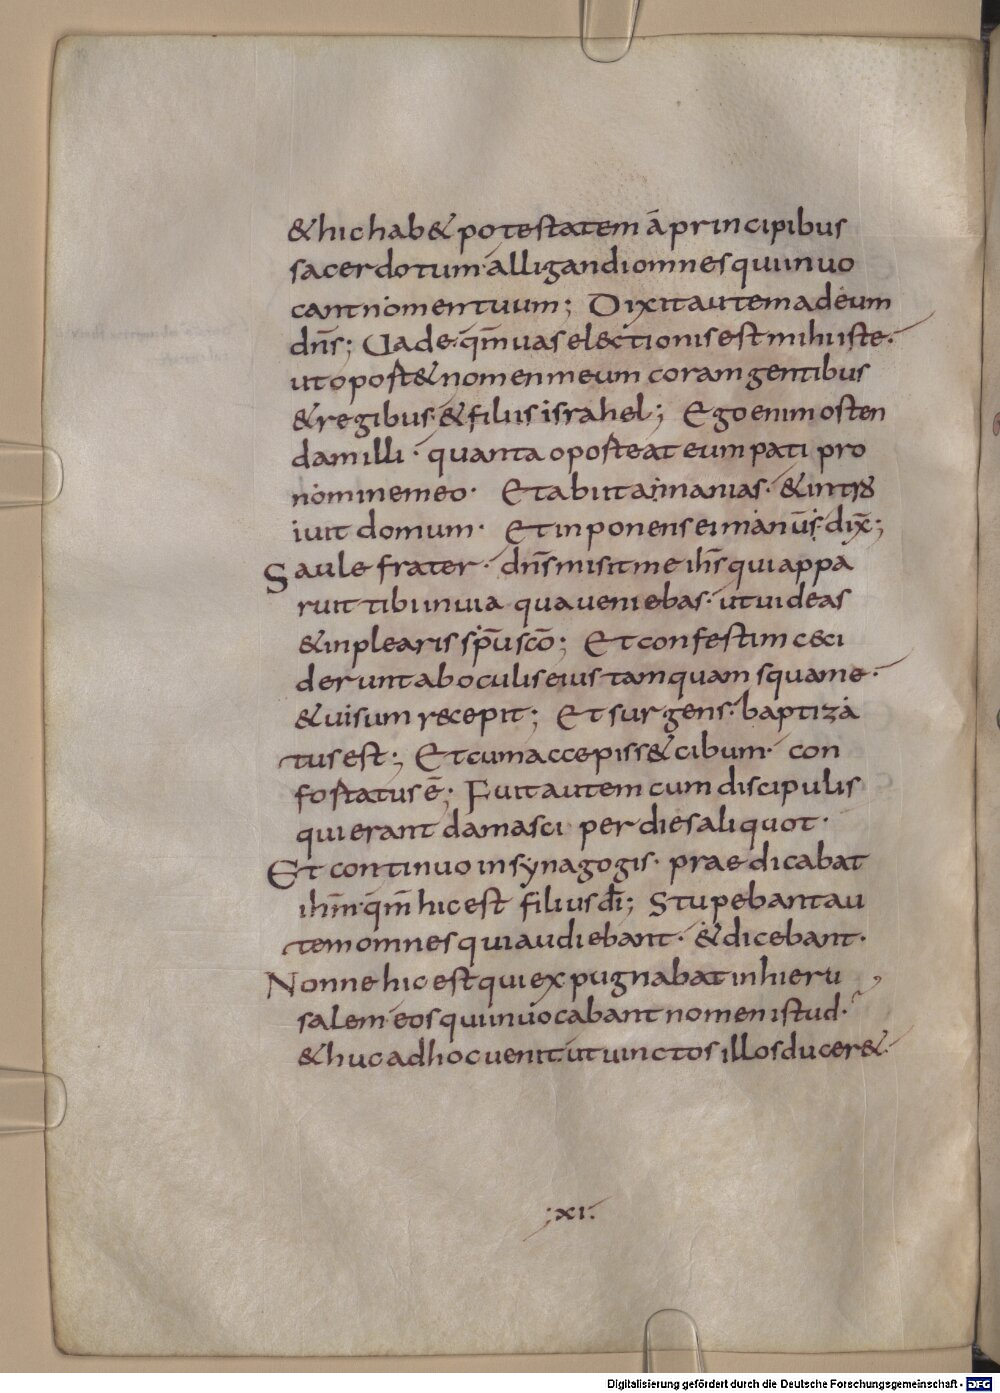 & hic hab& potestatem ā principibus
sacerdotum alligandi omnes qui inuo
cant nomen tuum; Dixit autem ad eum
dn̄s; Uade· qm̄ uas electionis est mihi iste·
ut oport& nomen meum coram gentibus
& regibus· & filiis israhel; Ego enim osten
dam illi· quanta oporteat eum pati pro
nomine meo· Et abiit annanias· & intro
iuit domum· Et inponens ei manūs· dix̄;
Saule frater· dn̄s misit me ih̄s qui appa
ruit tibi in uia qua ueniebas· ut uideas
& inplearis sp̄u scō; Et confestim ceci
derunt ab oculis eius tamquam squame·
& uisum recepit; Et surgens· baptiza
tus est; Et cum accepiss& cibum· con
fortatus ē; Fuit autem cum discipulis
qui erant damasci per dies aliquot·
Et continuo in synagogis· praedicabat
ihm̄· qm̄ hic est filius dī; Stupebant au
tem omnes qui audiebant· & dicebant·
Nonne hic est qui expugnabat in hieru
salem eos qui inuocabant nomen istud·
& huc ad hoc uenit ut uinctos illos ducer&·
:xi:
Digitalisierung gefördert durch die Deutsche Forschungsgemeinschaft - DFG